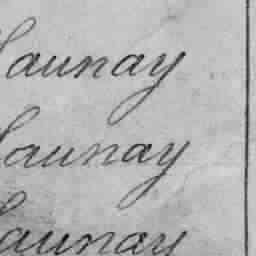 Launay
Launay
Launay